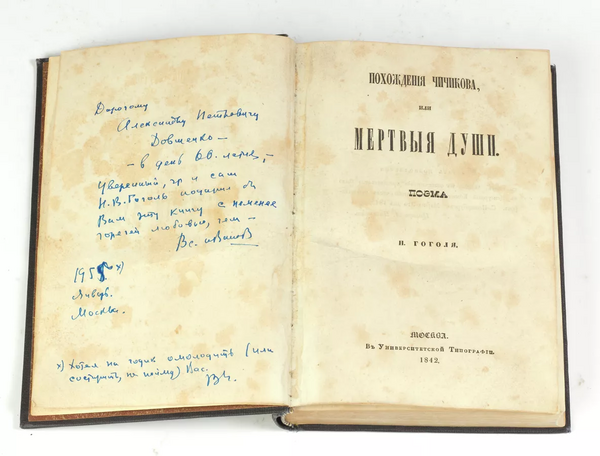 Дорогому
Александру Петровичу
Довженко —
— в день 60-летия, —
Уверенный, что и сам
Н.В. Гоголь подарил бы
Вам эту книгу с неменее
горячей любовью, чем —
Вс. Иванов
195 x)
Январь.
Москва.
x) Хотел на годик омолодить (или
состарить, не пойму) Вас.
ПОХОЖДЕНІЯ ЧИЧИКОВА,
ИЛИ
МЕРТВЫЯ ДУШИ.
ПОЭМА
Н. ГОГОЛЯ.
МОСКВА.
Въ Университетской Типографіи.
1842.